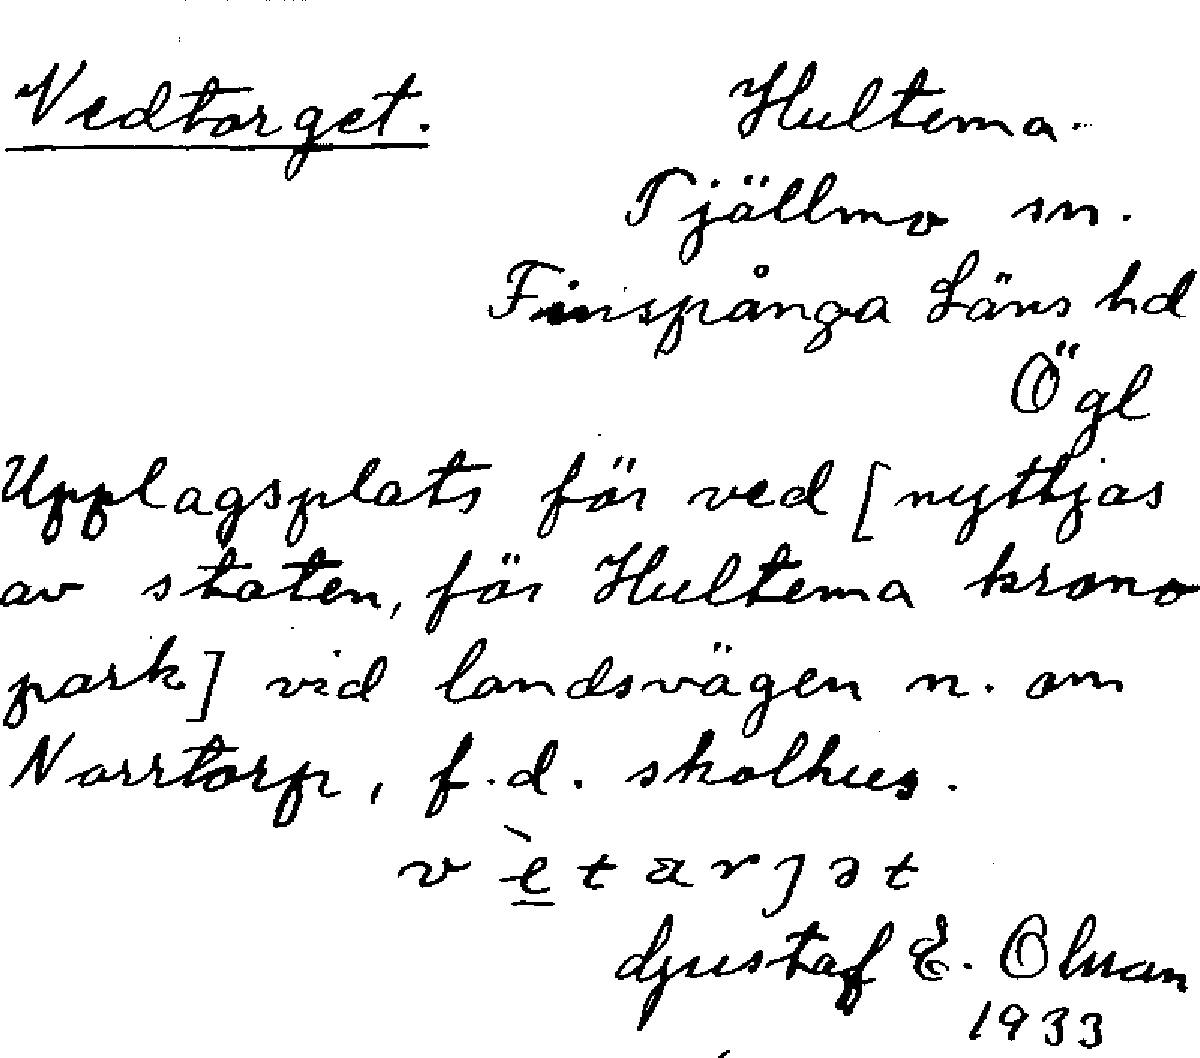 Vedtorget. Hultema.
Tjällmo sn.
Finspånga Läns hd
Ögl
Upplagsplats för ved [nyttjas
av staten, för Hultema krono
park] vid landsvägen n. om
Norrtorp, f.d. skolhus.
v è t a r j ə t
Gustaf E. Olman
1933